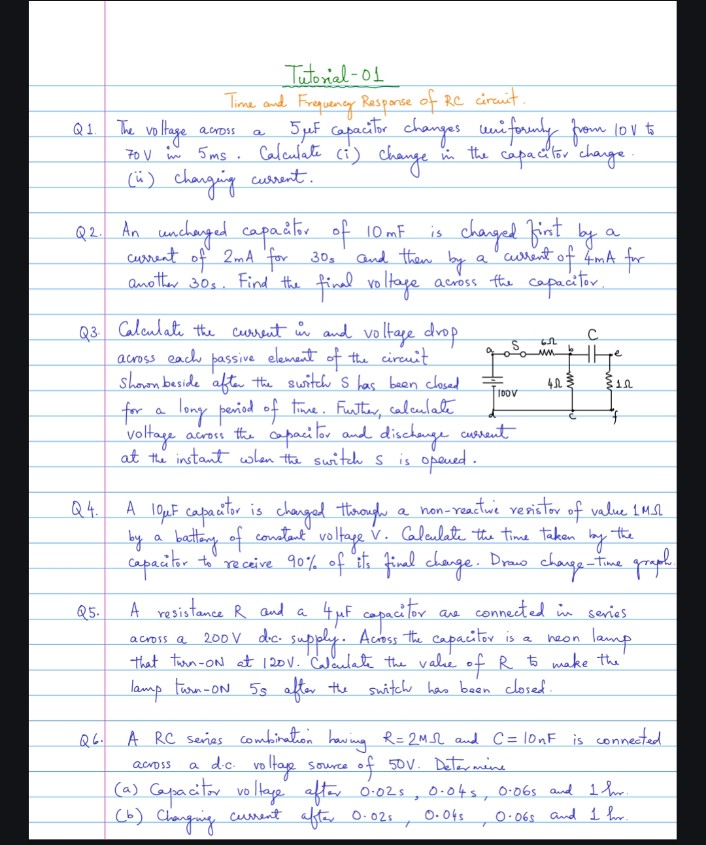 Tutorial-01
Time and Frequency Response of RC circuit.
Q1. The voltage across a 5μF capacitor changes uniformly from 10V to
70V in 5ms. Calculate (i) change in the capacitor charge.
(ii) charging current.
Q2. An uncharged capacitor of 10mF is charged first by a
current of 2mA for 30s and then by a current of 4mA for
another 30s. Find the final voltage across the capacitor.
Q3. Calculate the current in and voltage drop
across each passive element of the circuit
shown beside after the switch S has been closed
for a long period of time. Further, calculate
voltage across the capacitor and discharge current
at the instant when the switch S is opened.
a S 6Ω b C e
100V 4Ω 1Ω
d c f
Q4. A 10μF capacitor is charged through a non-reactive resistor of value 1MΩ
by a battery of constant voltage V. Calculate the time taken by the
capacitor to receive 90% of its final charge. Draw charge-time graph.
Q5. A resistance R and a 4μF capacitor are connected in series
across a 200V d.c. supply. Across the capacitor is a neon lamp
that turn-ON at 120V. Calculate the value of R to make the
lamp turn-ON 5s after the switch has been closed.
Q6. A RC series combination having R=2MΩ and C=10nF is connected
across a d.c. voltage source of 50V. Determine
(a) Capacitor voltage after 0.02s, 0.04s, 0.06s and 1 hr.
(b) Charging current after 0.02s, 0.04s, 0.06s and 1 hr.